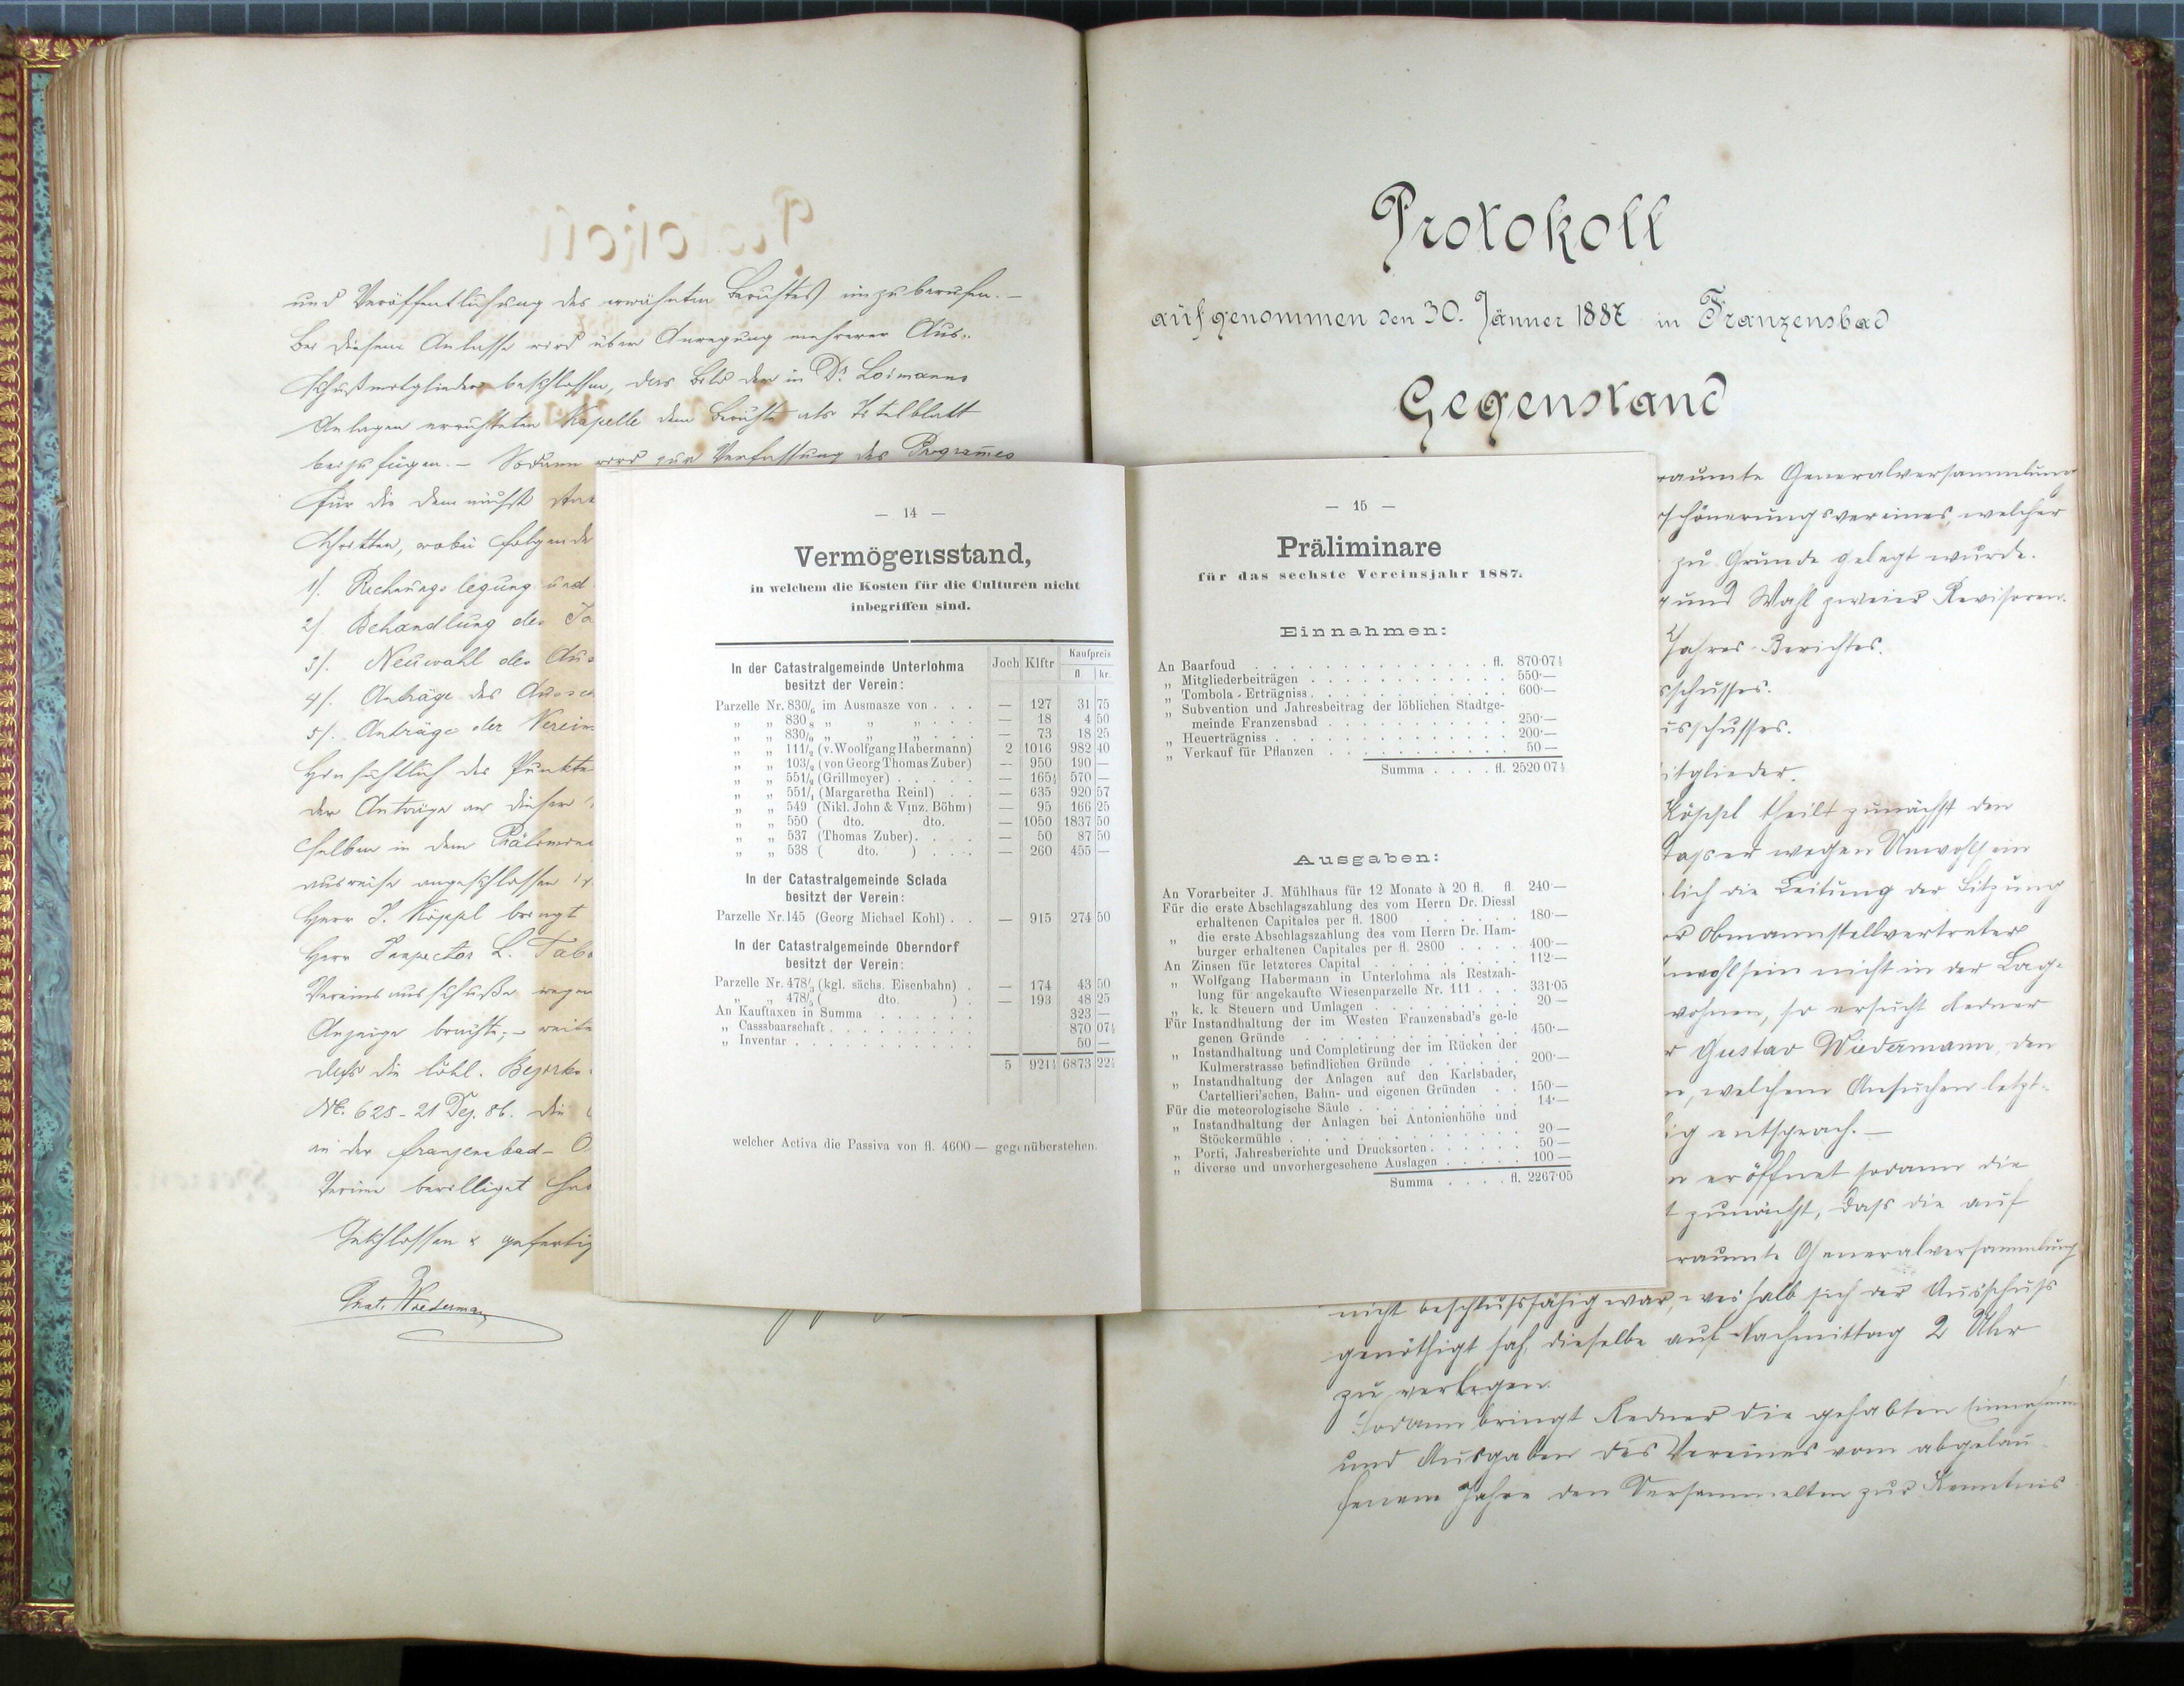 und Veröffentlichung des erwähnten Berichtes einzuberufen. –
Bei diesem Anlasse wird über Anregung mehrerer Aus-
schußmitglieder beschlossen, das Bild der in Dr. Loimanns
Anlagen errichteten Kapelle dem Berichte als Titelblatt
beizufügen. – Sodann wird zur Verfassung des Programes
für die demnächst
schritten, wobei folgende
1/. Rechnungslegung und
2/. Behandlung des Ja
3/. Neuwahl des Aus
4/. Anträge des Aussch
5/. Anträge der Verein
Hinsichtlich des Punkte
der Anträge an diesem
selben in dem Prälimina
ausweise angeschlossen
Herr J. Köppl bringt
Herr Inspector L. Tabo
Vereinsausschuße wegen
Anzeige brachte; – weite
daß die löbl. Bezirks
Nr. 628 – 21 Dez. 86. die
in der Franzensbad – O
Ferine bewilliget hat
Geschlossen & gefertig
Gust. Wiedermann
Protokoll
aufgenommen den 30. Jänner 1887 in Franzensbad
Gegenstand
raumte Generalversammlung
schönerungsvereines, welcher
zu Grunde gelegt wurde.
und Wahl zweier Revisoren.
Jahres-Berichtes.
sschusses.
usschusses.
itglieder.
Köppl theilt zunächst den
daß er wegen Unwohlsein
lich die Leitung der Sitzung
Obmannstellvertreter
Unwohlsein nicht in der Lage
wohnen, so ersucht Redner
Gustav Wiedermann, den
n, welchem Ansuchen letzt-
ig entsprach. –
eröffnet sodann die
t zunächst, dass die auf
raumte Generalversammlung
nicht beschlußfähig war, weshalb sich der Ausschuss
genöthigt sah, dieselbe auf Nachmittag 2 Uhr
zu verlegen.
Sodann bringt Redner die gehabten Einnahmen
und Ausgaben des Vereines vom abgelau-
fenem Jahre den Versammelten zur Kenntnis
— 14 —
Vermögensstand,
in welchem die Kosten für die Culturen nicht
inbegriffen sind.
In der Catastralgemeinde Unterlohma besitzt der Verein: Joch Klftr Kaufpreis fl kr.
Parzelle Nr. 830/6 im Ausmasze von . . . — 127 31 75
„ „ 830/8 „ „ „ . . . — 18 4 50
„ „ 830/9 „ „ „ . . . — 73 18 25
„ „ 111/2 (v. Woolfgang Habermann) 2 1016 982 40
„ „ 103/2 (von Georg Thomas Zuber) — 950 190 —
„ „ 551/2 (Grillmeyer) . . . . . — 165½ 570 —
„ „ 551/1 (Margaretha Reinl) . . — 635 920 57
„ „ 549 (Nikl. John & Vinz. Böhm) — 95 166 25
„ „ 550 ( dto. dto. — 1050 1837 50
„ „ 537 (Thomas Zuber). . . . — 50 87 50
„ „ 538 ( dto. ) . . . . — 260 455 —
In der Catastralgemeinde Sclada
besitzt der Verein:
Parzelle Nr. 145 (Georg Michael Kohl) . . — 915 274 50
In der Catastralgemeinde Oberndorf
besitzt der Verein:
Parzelle Nr. 478/4 (kgl. sächs. Eisenbahn) . — 174 43 50
„ „ 478/5 ( dto. ) . — 193 48 25
An Kauftaxen in Summa . . . . . . 323 —
„ Cassabaarschaft . . . . . . . . . . 870 07½
„ Inventar . . . . . . . . . . . . 50 —
5 921½ 6873 22½
welcher Activa die Passiva von fl. 4600 — gegenüberstehen.
— 15 —
Präliminare
für das sechste Vereinsjahr 1887.
Einnahmen:
An Baarfoud . . . . . . . . . . . . fl. 870·07½
„ Mitgliederbeiträgen . . . . . . . . . . 550·—
„ Tombola-Erträgniss . . . . . . . . . . 600·—
„ Subvention und Jahresbeitrag der löblichen Stadtge-
meinde Franzensbad . . . . . . . . . 250·—
„ Heuerträgniss . . . . . . . . . . . . 200·—
„ Verkauf für Pflanzen . . . . . . . . . . 50 —
Summa . . . . fl. 2520 07½
Ausgaben:
An Vorarbeiter J. Mühlhaus für 12 Monate à 20 fl. fl. 240·—
Für die erste Abschlagszahlung des vom Herrn Dr. Diessl
erhaltenen Capitales per fl. 1800 . . . . . . 180·—
„ die erste Abschlagszahlung des vom Herrn Dr. Ham-
burger erhaltenen Capitales per fl. 2800 . . . . 400·—
An Zinsen für letzteres Capital . . . . . . . . 112·—
„ Wolfgang Habermann in Unterlohma als Restzah-
lung für angekaufte Wiesenparzelle Nr. 111 . . . 331·05
„ k. k. Steuern und Umlagen . . . . . . . . 20 —
Für Instandhaltung der im Westen Franzensbad's ge-le
genen Gründe . . . . . . . . . . 450·—
„ Instandhaltung und Completirung der im Rücken der
Kulmerstrasse befindlichen Gründe . . . . . 200·—
„ Instandhaltung der Anlagen auf den Karlsbader,
Cartellieri'schen, Bahn- und eigenen Gründen . . 150·—
Für die meteorologische Säule . . . . . . . . . 14·—
„ Instandhaltung der Anlagen bei Antonienhöhe und
Stöckermühle . . . . . . . . . . . . 20 —
„ Porti, Jahresberichte und Drucksorten . . . . . 50 —
„ diverse und unvorhergesehene Auslagen . . . . . 100 —
Summa . . . . fl. 2267·05